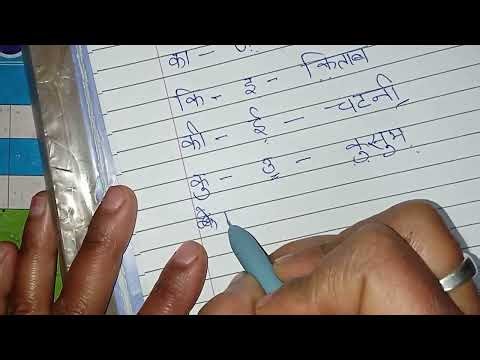 का -
कि - इ - किताब
की - ई - चटनी
कु - उ - कुसुम